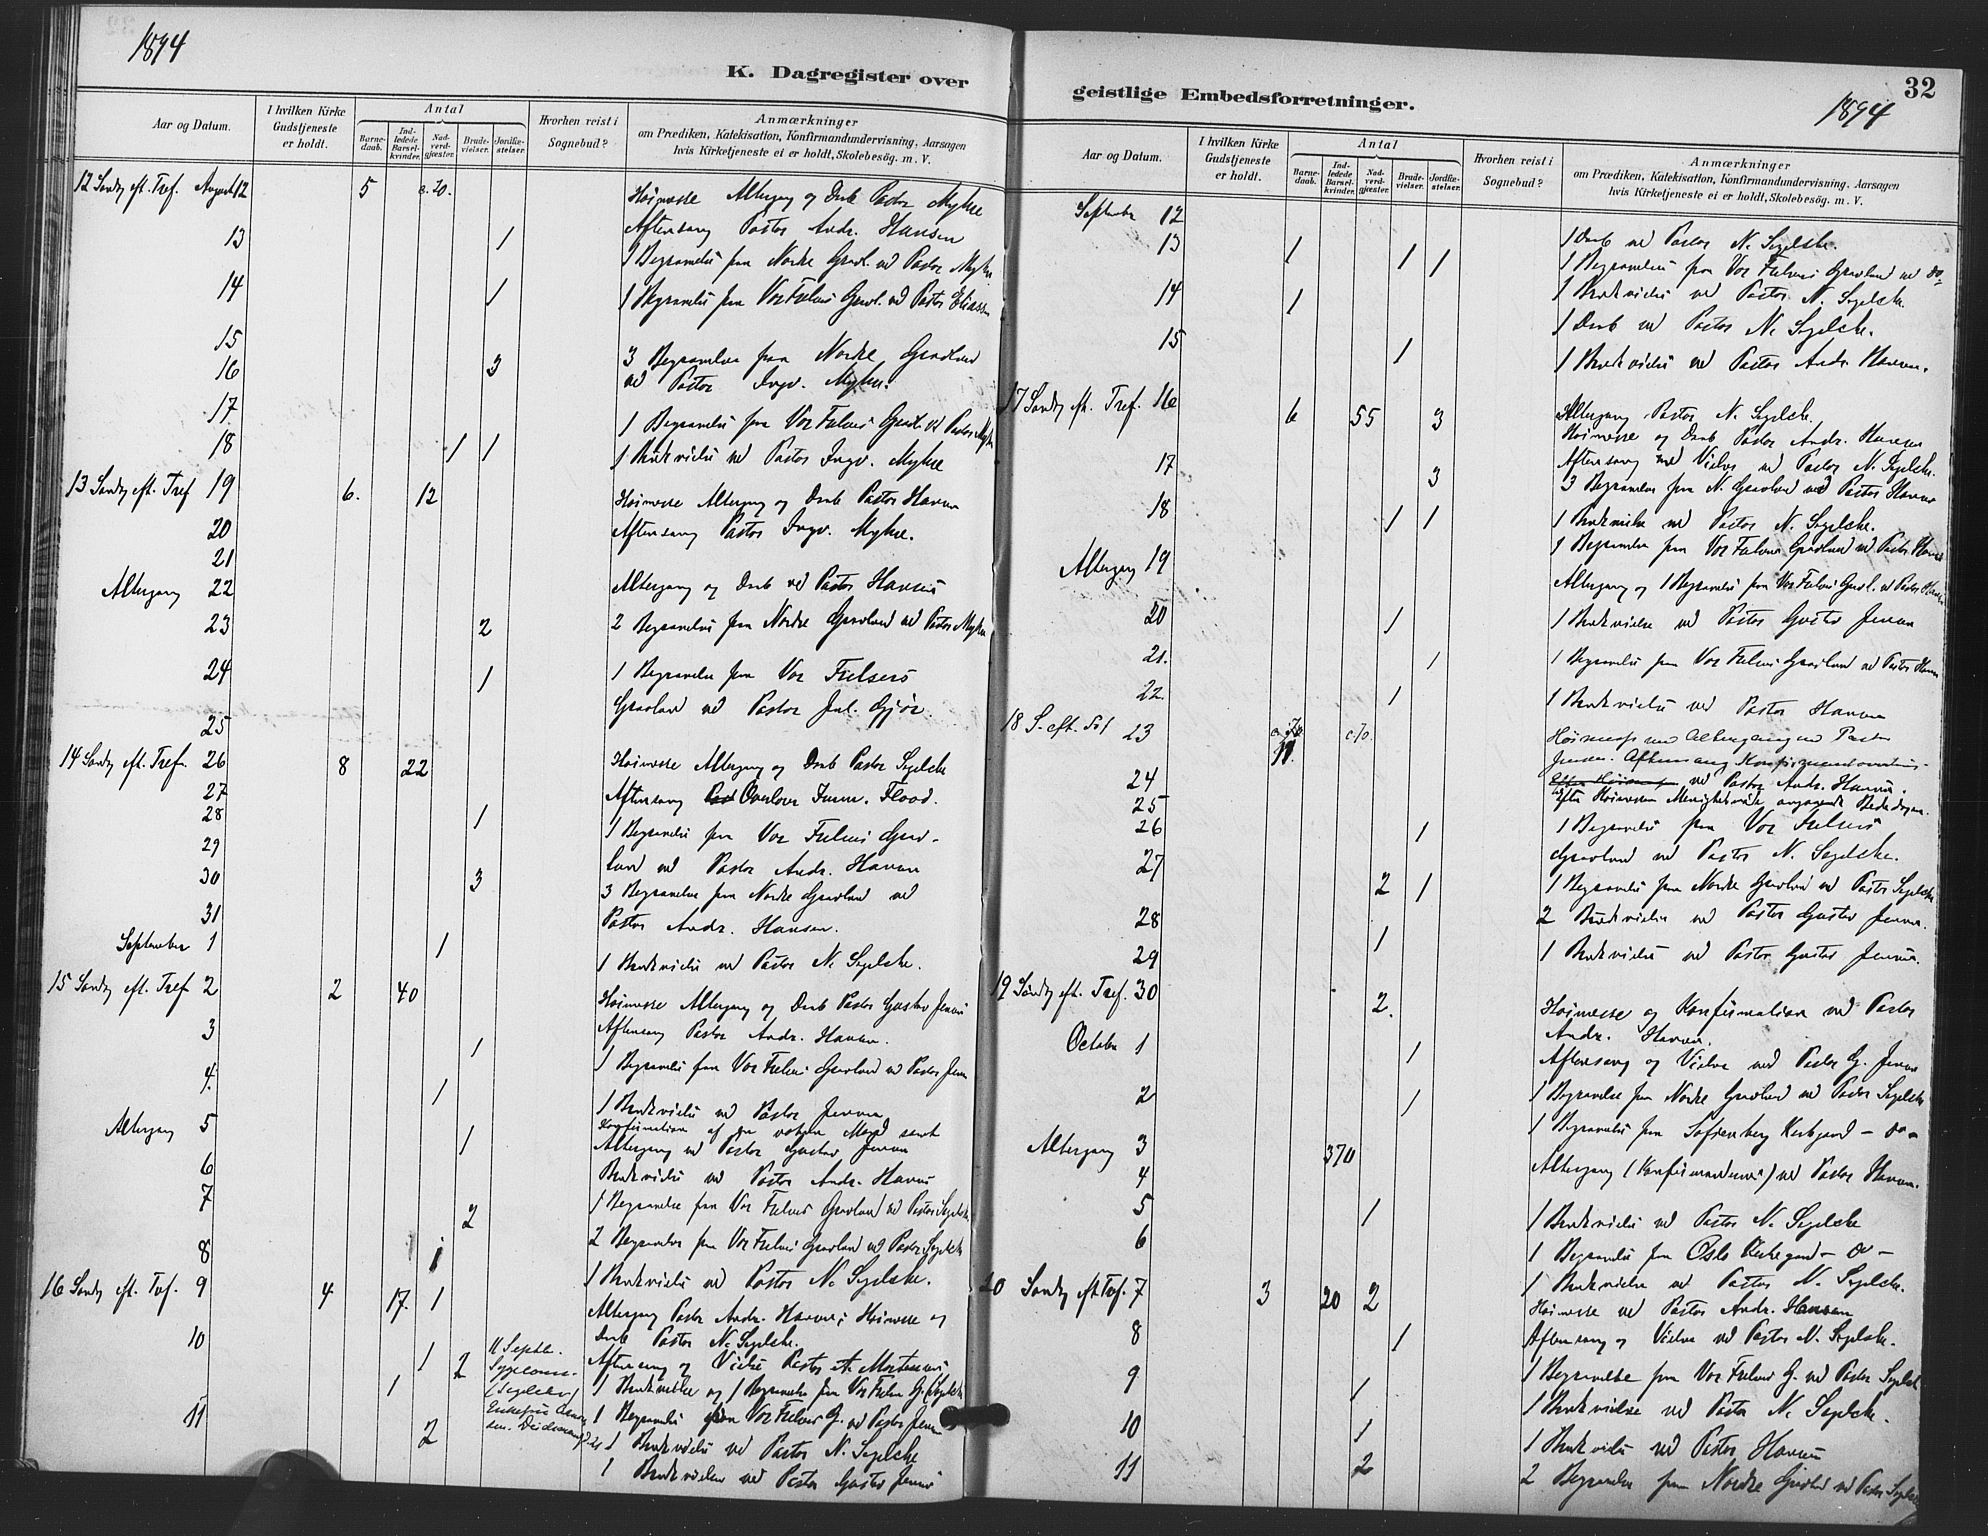 1894
K. Dagregister over
Aar og Datum.
I hvilken Kirke Gudstjeneste er holdt.
Antal
Barne-daab.
Ind-ledede Barsel-kvinder.
Nad-verd-gjæster.
Brude-vielser.
Jordfæ-stelser.
Hvorhen reist i Sognebud?
Anmærkninger
om Prædiken, Katekisation, Konfirmandundervisning, Aarsagen
hvis Kirketjeneste ei er holdt, Skolebesøg. m. V.
12 Sondg eft. Tref. August 12 5 c. 20. Høimesse Altergang og Daab Pastor Myhre
Aftensang Pastor Andr. Hansen
13 1 1 Begravelse fra Nordre Gravl. ved Pastor Myhre
14 1 1 Begravelse fra Vor Frelsers Gravl. ved Pastor
15
16 3 3 Begravelser fra Nordre Gravlund
ved Pastor Ingv. Myhre.
17. 1 Begravelse fra Vor Frelsers Gravl. v Pastor Myhre
18 1 1 1 Brudevielse ved Pastor Ingv. Myhre
13 Sondg eft. Tref 19 6. 12 Høimesse Altergang og Daab Pastor Hansen
20 Aftensang Pastor Ingv. Myhre.
21
Altergang 22 Altergang og Daab ved Pastor Hansen
23 2 2 Begravelser fra Nordre Gravlund ved Pastor Myhre
24 1 1 Begravelse fra Vor Frelsers
Gravlund ved Pastor Jul. Gjør
25
14 Sondg eft. Tref. 26 8 22 Høimesse Altergang og Daab Pastor Segelcke
27 Aftensang Overlærer Flood.
28 1 1 Begravelse fra Vor Frelsers Grav-
29 lund ved Pastor Andr. Hansen
30 3 3 Begravelser fra Nordre Gravlund ved
31 Pastor Andr. Hansen.
September 1 1 1 Brudevielse ved Pastor N. Segelcke.
15 Sondg eft. Tref 2 2 40 Høimesse Altergang og Daab Pastor Gustav Jensen
3 Aftensang Pastor Andr. Hansen.
1 1 Begravelse fra Vor Frelsers Gravlund ved Pastor Jensen
4. 1 1 Brudevielse ved Pastor Jensen
Altergang 5 Konfirmation af en voksen Mand samt
1 Altergang ved Pastor Gustav Jensen
6 Brudevielse ved Pastor Andr. Hansen
7 1 Begravelse fra Vor Frelsers Gravlund ved Pastor Segelcke
2 2 Begravelser fra Vor Frelsers Gravlund ved Pastor Segelcke
8 1 1 Brudevielse ved Pastor N. Segelcke.
16 Sondg eft. Tref. 9 4 17. 1 Altergang Pastor Andr. Hansen; Høimesse og
Daab Pastor N. Segelcke.
10 1 2 11 Septbr. Aftensang og Vielse Pastor Mortensen
1 (Segelcke) 1 Brudevielse og 1 Begravelse fra Vor Frelsers G. (Segelcke
1 Begravelse fra Vor Frelsers G. ved Pastor Jensen
11 2 1 Brudevielse ved Pastor N. Segelcke
1 Brudevielse ved Pastor Gustav Jensen
32
1894
geistlige Embedsforretninger.
Aar og Datum.
I hvilken Kirke Gudstjeneste er holdt.
Antal
Barne-daab.
Ind-ledede Barsel-kvinder.
Nad-verd-gjæster.
Brude-vielser.
Jordfæ-stelser.
Hvorhen reist i Sognebud?
Anmærkninger
om Prædiken, Katekisation, Konfirmandundervisning, Aarsagen
hvis Kirketjeneste ei er holdt, Skolebesøg. m. V.
September 12 1 Daab ved Pastor N. Segelcke.
13 1 1 1 1 Begravelse fra Vor Frelsers Gravlund ved do
1 Brudevielse ved Pastor N. Segelcke.
14 1 1 Daab ved Pastor N. Segelcke.
15 1 1 Brudevielse ved Pastor Andr. Hansen.
17 Sondg eft. Tref. 16 6 55 3 Altergang Pastor N. Segelcke.
Høimesse og Daab Pastor Andr. Hansen
Aftensang med Vielse ved Pastor N. Segelcke.
17 3 3 Begravelser fra N. Gravlund ved Pastor Hansen
18 1 1 1 Brudevielse ved Pastor N. Segelcke.
1 Begravelse fra Vor Frelsers Gravlund ved Pastor Hansen
Altergang 19 Altergang og 1 Begravelse fra Vor Frelsers Gravl. ved Pastor Hansen
20 1 1 Brudevielse ved Pastor Gustav Jensen
21. 1 1 Begravelse fra Vor Frelsers Gravlund ved Pastor Hansen
22. 1 1 Brudevielse ved Pastor Hansen
18 S. eft. 23 11. Høimesse med Altergang ved Pastor
Jensen. Aftensang
24 Efter Høimessen ved Pastor Andr. Hansen.
25 Efter Høimessen Menighedsmøde angaaende
26 1 1 Begravelse fra Vor Frelsers
Gravlund ved Pastor N. Segelcke.
27 2 1 1 Begravelse fra Nordre Gravlund ved Pastor Segelcke
28 2 Brudevielser ved Pastor Gustav Jensen.
29 1 1 Brudevielse ved Pastor Gustav Jensen.
19 Søndg eft. Tref. 30 2. Høimesse og Konfirmation ved Pastor
Andr. Hansen.
October 1 1 Aftensang og Vielse ved Pastor G. Jensen
1 Begravelse fra Nordre Gravlund ved Pastor Segelcke
2 1 1 Begravelse fra Sofienberg Kirkegaard – do –
Altergang 3 370 Altergang (Konfirmanderne) ved Pastor Hansen.
4
5 1 1 Brudevielse ved Pastor N. Segelcke
6 1 Begravelse fra Oslo Kirkegaard – do –
1 Brudevielse ved Pastor N. Segelcke.
20 Sondg eft Tref. 7 3 20 2 Høimesse ved Pastor Andr. Hansen
Aftensang og Vielse ved Pastor N. Segelcke.
8 1 1 Begravelse fra Vor Frelsers G. ved Pastor Segelcke
9 1 1 Brudevielse ved Pastor N. Segelcke.
10 1 1 Brudevielse ved Pastor Hansen
11 2 2 Begravelser fra Nordre Gravlund ved Pastor Segelcke